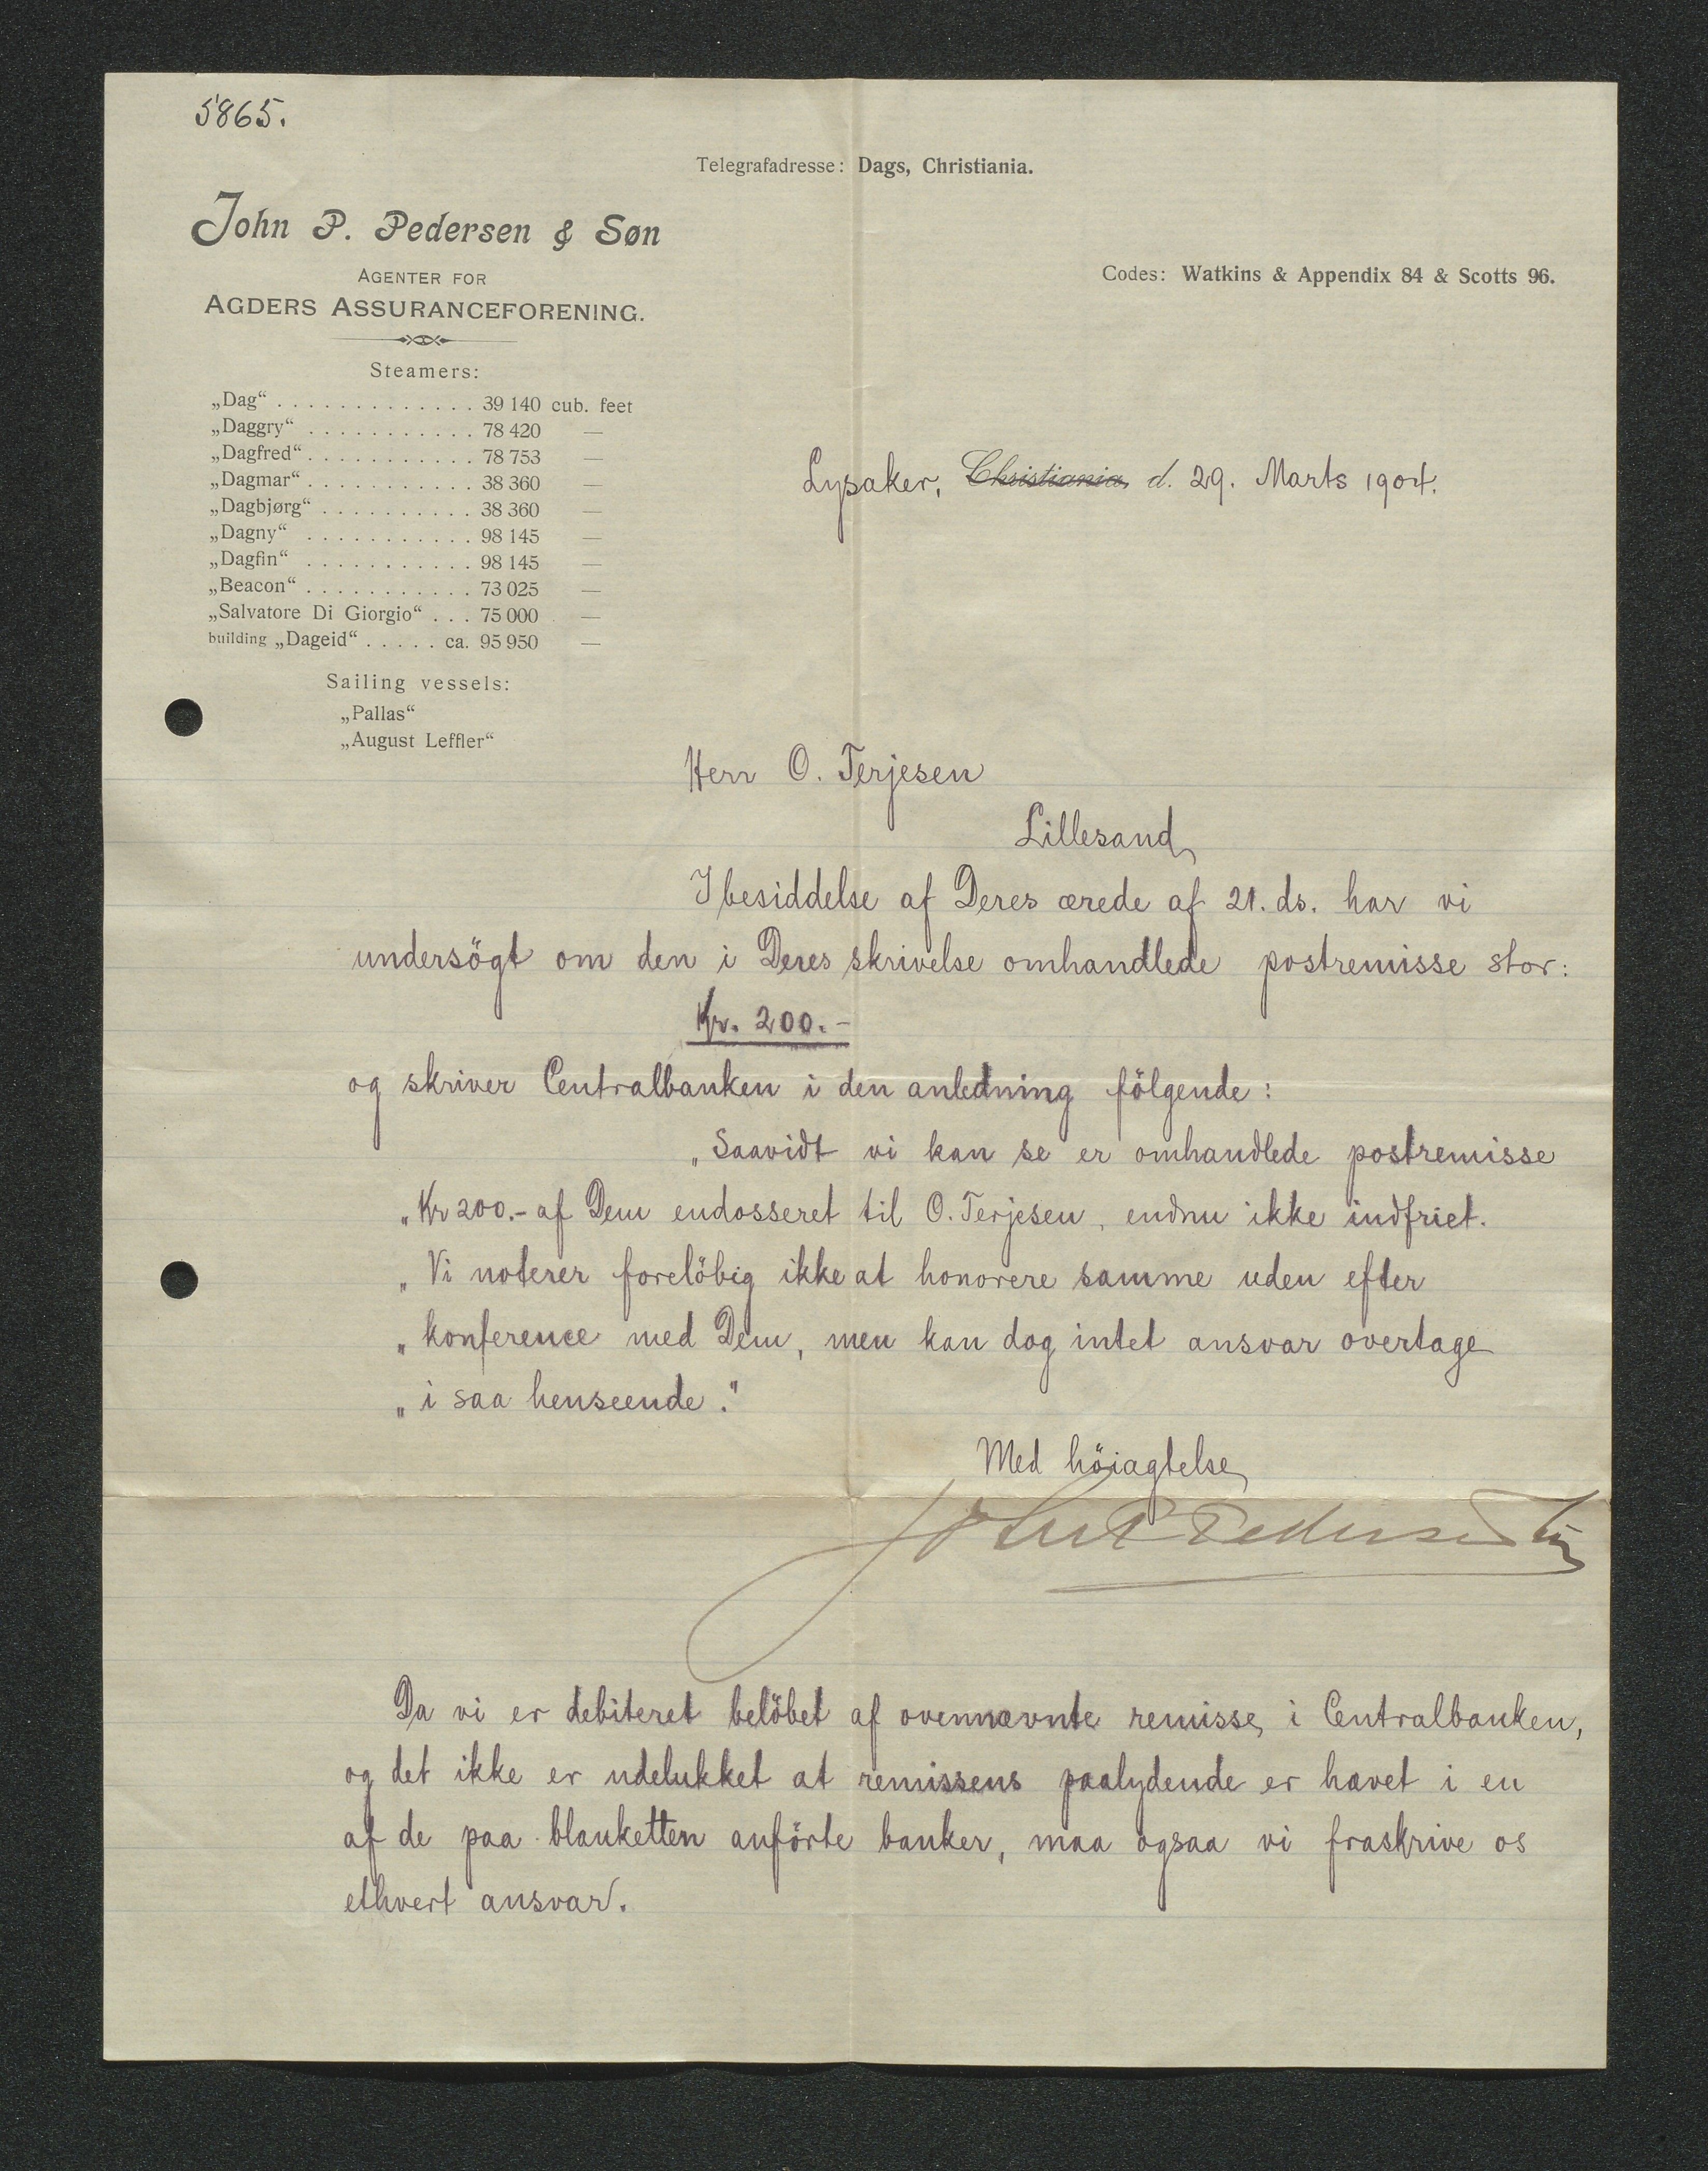 5865.
Telegrafadresse: Dags, Christiania.
John P. Pedersen & Søn
AGENTER FOR
AGDERS ASSURANCEFORENING.
Codes: Watkins & Appendix 84 & Scotts 96.
Steamers:
„Dag“ . . . . . . . . . . . . . 39 140 cub. feet
„Daggry“ . . . . . . . . . . . 78 420 —
„Dagfred“ . . . . . . . . . . . 78 753 —
„Dagmar“ . . . . . . . . . . . 38 360 —
„Dagbjørg“ . . . . . . . . . . 38 360 —
„Dagny“ . . . . . . . . . . . 98 145 —
„Dagfin“ . . . . . . . . . . . 98 145 —
„Beacon“ . . . . . . . . . . . 73 025 —
„Salvatore Di Giorgio“ . . . 75 000 —
building „Dageid“ . . . . . ca. 95 950 —
Sailing vessels:
„Pallas“
„August Leffler“
Lysaker, Christiania, d. 29. Marts 1904.
Herr O. Terjesen
Lillesand
I besiddelse af Deres ærede af 21. ds. har vi
undersögt om den i Deres skrivelse omhandlede postremisse stor:
Kr. 200.-
og skriver Centralbanken i den anledning fölgende:
„Saavidt vi kan se er omhandlede postremisse
„Kr 200.- af Dem endosseret til O. Terjesen, endnu ikke indfriet.
„Vi noterer forelöbig ikke at honorere samme uden efter
„konference med Dem, men kan dog intet ansvar overtage
„i saa henseende."
Med höiagtelse
John P Pedersen & Søn
Da vi er debiteret belöbet af ovennævnte remisse, i Centralbanken,
og det ikke er udelukket at remissens paalydende er hævet i en
af de paa blanketten anförte banker, maa ogsaa vi fraskrive os
ethvert ansvar.